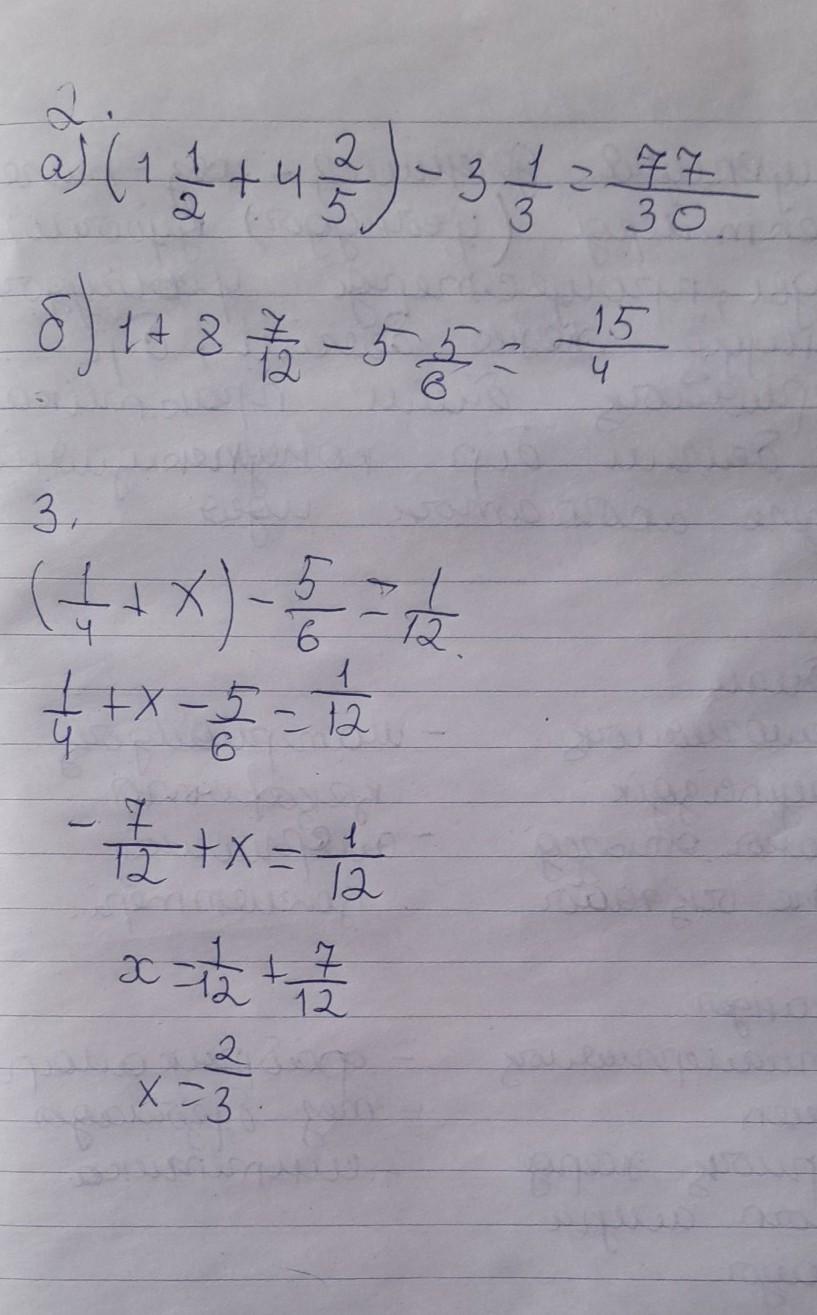 2.
а) (1 1/2 + 4 2/5) - 3 1/3 = 77/30
б) 1 + 8 7/12 - 5 5/6 = 15/4
3.
(1/4 + x) - 5/6 = 1/12.
1/4 + x - 5/6 = 1/12
- 7/12 + x = 1/12
x = 1/12 + 7/12
x = 2/3.